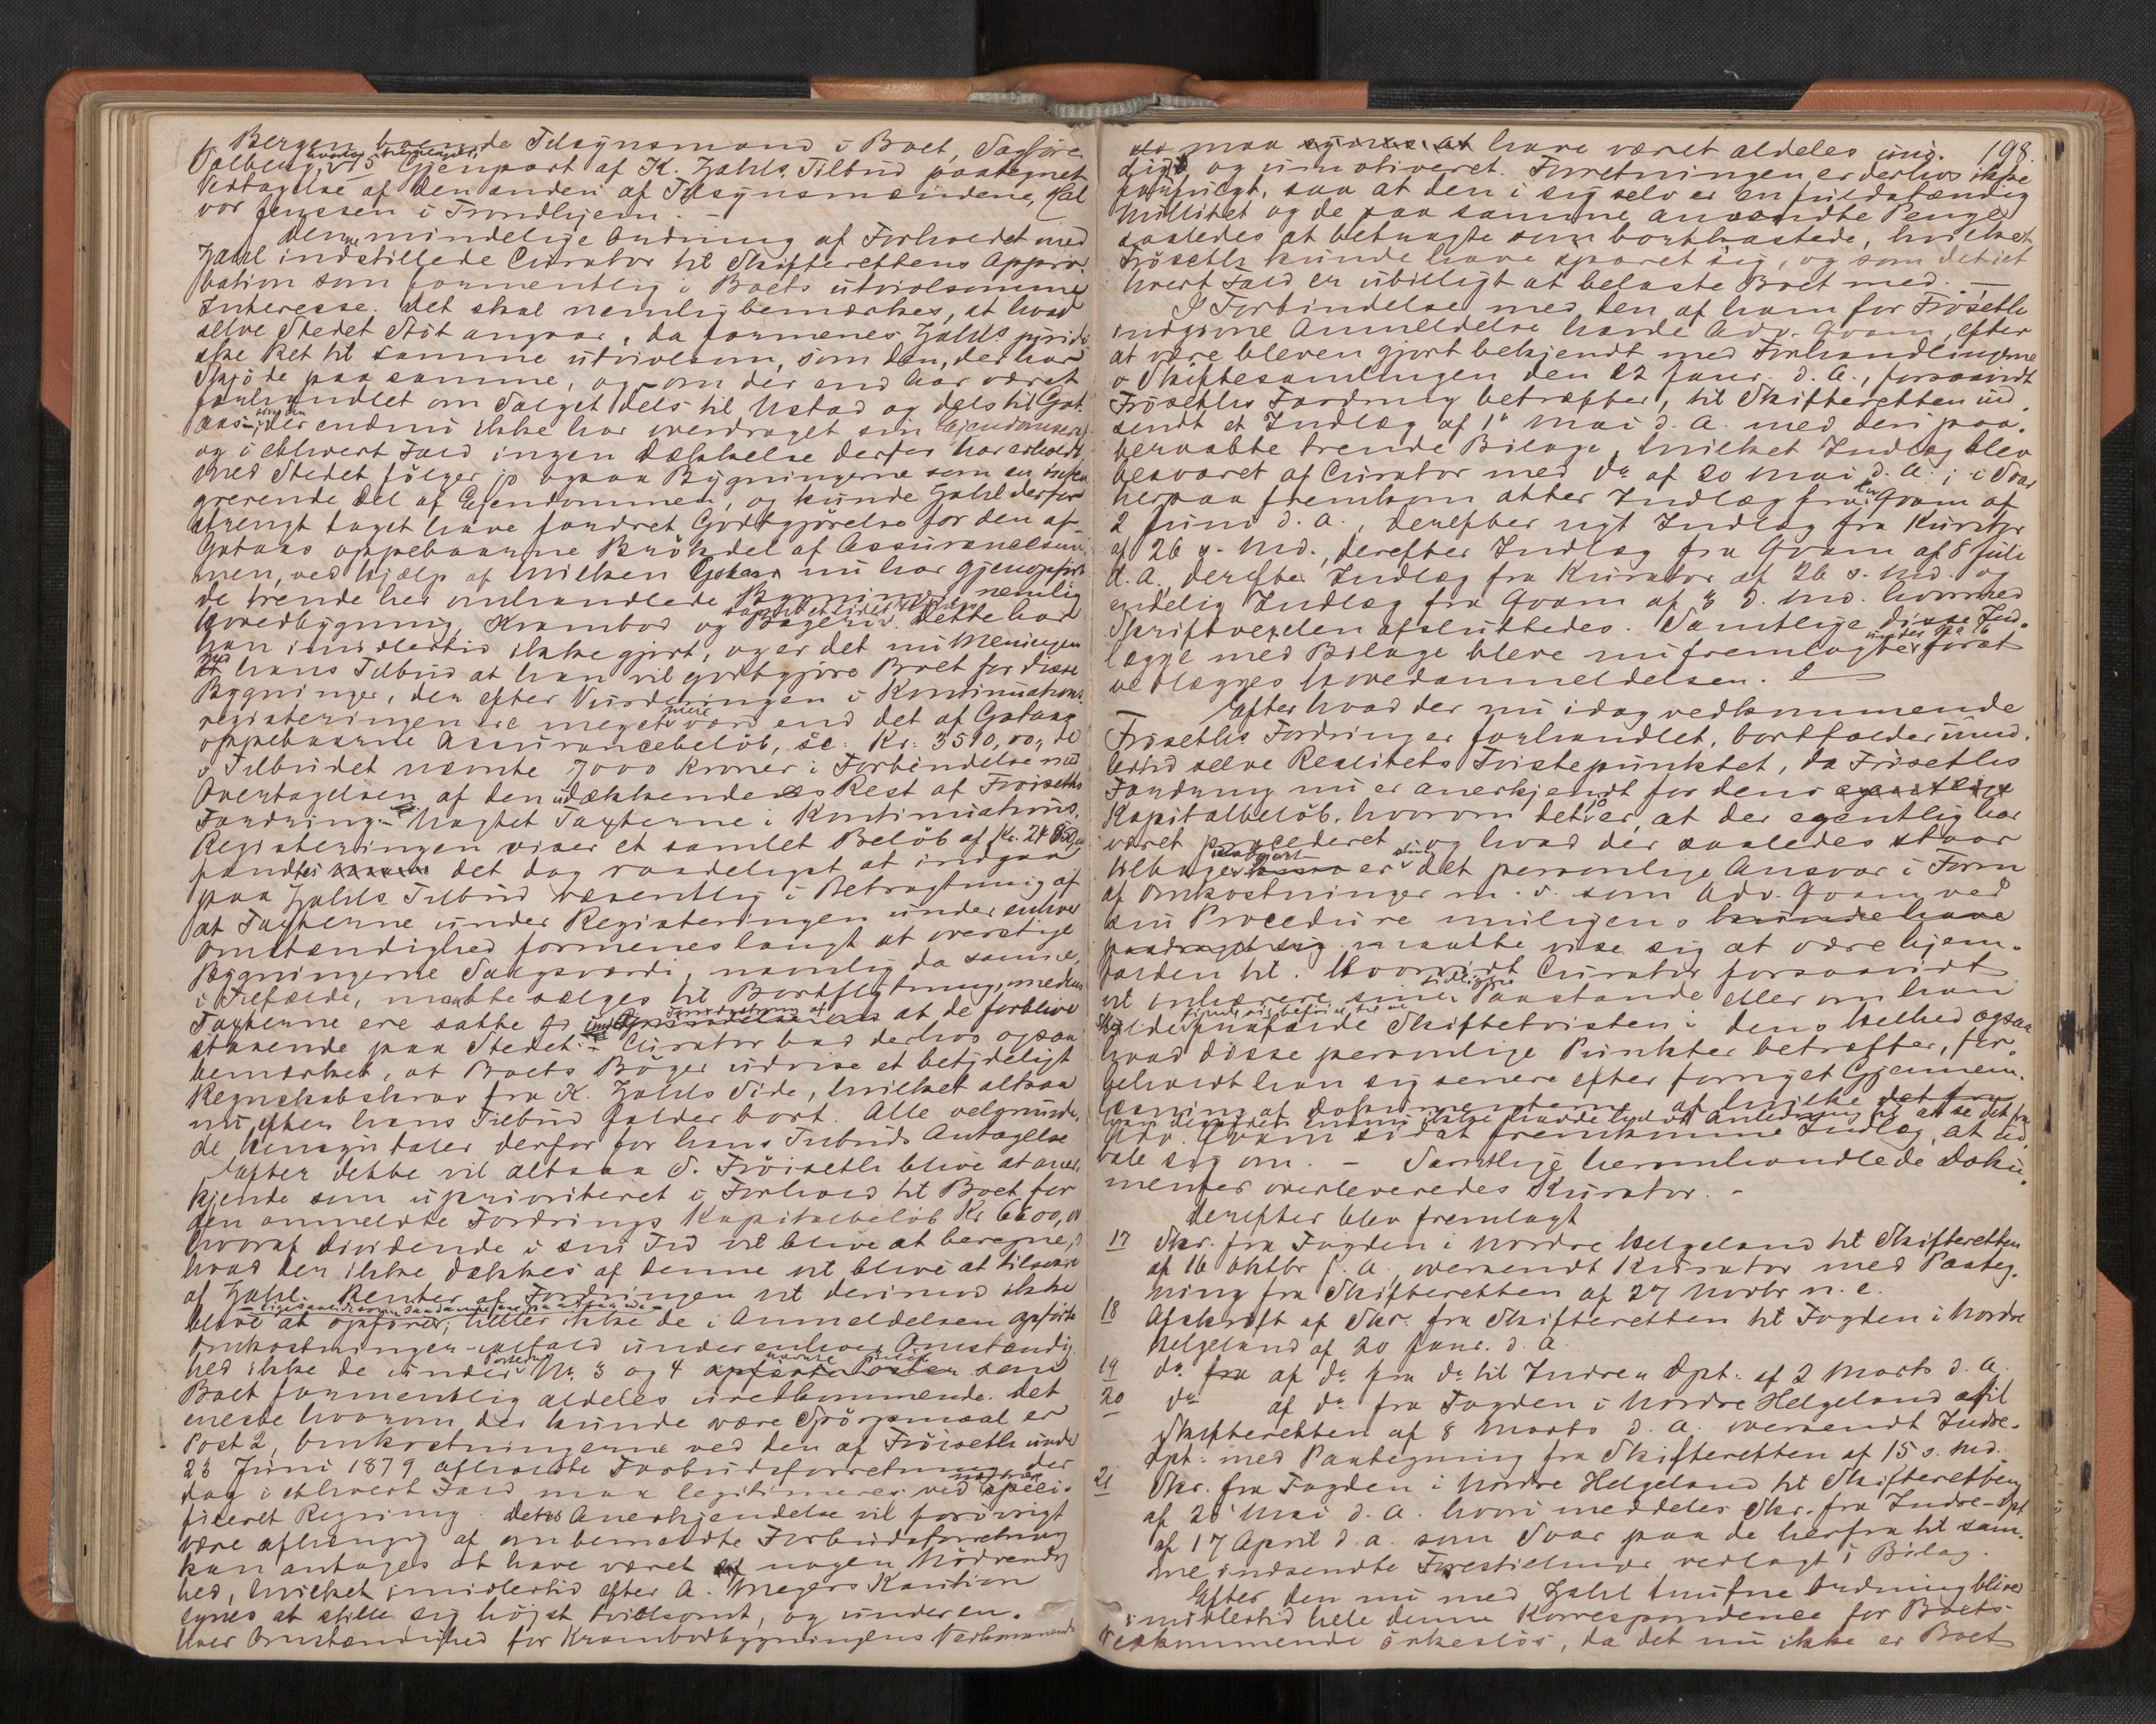 i Bergen boende Tilsynsmand i Boet, Sagfører
Salberg, hvorhos fremlagdes Gjenpart af K. Zahls Tilbud paategnet
Vedtagelse af den anden af Tilsynsmændene, Hal
vor Jenssen i Trondhjem. -
Denne mindelige Ordning af Forholdet med
Zahl indstillede Curator til Skifterettens Appro-
bation som formentlig i Boets utvivlsomme
Interesse. Det skal nemlig bemærkes, at hvad
selve Stedet Støt angaar, da formenes Zahls juridi-
ske Ret til samme utvivlsom, som den, der har
Skjøde paa samme, og om der end har været
forhandlet om Salget dels til Ustad og dels til Got-
aas der endnu ikke har overdraget sin Ejendomsret
og i ethvert Fald ingen Dækkelse derfor har erholdt.
Med Stedet følger jo ogsaa Bygningerne som en inte-
grerende Del af Ejendommen, og kunde Zahl derfor
strengt taget have fordret Godtgjørelse for den af
Gotaas oppebaarne Brøkdel af Assurancesum-
men, ved Hjælp af hvilken Gotaas nu har gjenopført
de trende her omhandlede Bygninger nemlig
Hovedbygning, Krambod og Bageri. Dette har
han imidlertid ikke gjort, og er det nu Meningen
med hans Tilbud at han vil godtgjøre Boet for disse
Bygninger, der efter Vurderingen i Kontinuations-
registeringen ere meget mere værd end det af Gotaas
oppebaarne Assurancebeløb, sc. Kr. 3510,00, de
i Tilbudet nævnte 7000 Kroner i Forbindelse med
Overtagelsen af den udækkede Rest af Frøiseths
Fordring. - Uagtet Taxterne i Kontinuations-
Registeringen viser et samlet Beløb af Kr.
fandtes det dog raadeligst at indgaa
paa Zahls Tilbud væsentlig i Betragtning af
at Taxterne under Registeringen under enhver
Omstændighed formenes langt at overstige
Bygningerne Salgsværdi, nemlig da samme,
i Tilfælde, maatte sælges til Bortflytning, medens
Taxterne ere satte under Forudsætning af at de forblive
staaende paa Stedet. - Curator bad derhos ogsaa
bemærket, at Boets Bøger udvise et betydeligt
Regnskabskrav fra K. Zahls Side, hvilket altsaa
nu efter hans Tilbud falder bort. Alle velgrunde-
de Hensyn taler derfor for hans Tilbuds Antagelse
Efter dette vil altsaa S. Frøiseth blive at aner-
kjende som uprioriteret i Forhold til Boet for
den anmeldte Fordrings Kapitalbeløb Kr 6600,00
hvoraf Dividende i sin Tid vil blive at beregne,
hvad der ikke dækkes af denne vil blive at tilsvare
af Zahl. Renter af Fordringen vil derimod ikke
blive at opføre, heller ikke de i Anmeldelsen opførte
Omkostninger - ialfald under enhver Omstændig-
hed ikke de under Posterne No. 3 og 4 nævnte som
Boet formentlig aldeles uvedkommende. Det
eneste hvorom der kunde være Spørgsmaal er
Post 2, Omkostningerne ved den af Frøiseth under
23 Juni 1879 afholdte Forbudsforretning der
dog i ethvert Fald maa legitimeres ved speci-
ficeret Regning. Dettes Anerkjendelse vil forøvrigt
være afhængig af om bemeldte Forbudsforretning
kan antages at have været af nogen Nødvendig-
hed, hvilket imidlertid efter A. Meyers Kaution
synes at stille sig højst tvivlsomt, og under en-
hver Omstændighed for Krambodbygningens Vedkommende
198.
maa synes at have været aldeles unø-
dig, og umotiveret. Forretningen er derhos ikke
forfulgt, saa at den i sig selv er en fuldstændig
Nullitet og de paa samme anvendte Penge
saaledes at betragte som bortkastede, hvilket
Frøseth kunde have sparet sig, og som det i et
hvert Fald er ubilligt at belaste Boet med. -
I Forbindelse med den af ham for Frøseth
indgivne Anmeldelse havde Adv. Qvam, efter
at være bleven gjort bekjendt med Forhandlingerne
i Skiftesamlingen den 22 Janr. d. A., forsaavidt
Frøseths Fordring betræffer, til Skifteretten ind-
sendt et Indlæg af 1' Mai d. A. med deri paa-
beraabte trende Bilage, hvilket Indlæg blev
besvaret af Curator med do af 20 Mai d. A.; i Svar
herpaa fremkom atter Indlæg fra Qvam af
2 Juni d. A., derefter nyt Indlæg fra Kurator
af 26 s. Md., derefter Indlæg fra Qvam af 8 Juli
d. A., derefter Indlæg fra Kurator af 26 s. Md. og
endelig Indlæg fra Qvam af 3 d. Md. hvormed
Skriftvexlen afsluttedes. Samtlige disse Ind-
lægge med Bilage bleve nu fremlagte under No 16 for at
vedlægges Hovedanmeldelsen.
Efter hvad der nu idag vedkommende
Frøseths Fordring er forhandlet, bortfalder imid-
lertid selve Realitets Tvistepunktet, da Frøseths
Fordring nu er anerkjendt for dens egentlige
Kapitalbeløb, hvorom det jo er, at der egentlig har
været procederet og hvad der saaledes staar
tilbage er det personlige Ansvar i Form
af Omkostninger m. v. som Adv. Qvam ved
sin Procedure muligens kunde have
paadraget sig maatte vise sig at være hjem-
falden til. Hvorvidt Curator forsaavidt
vil inhærere sine tidligere Paastande eller om han
skulde finde sig beføiet til at frafalde Skiftetvisten i dens Helhed ogsaa
hvad disse personlige Punkter betræffer, for-
beholdt han sig senere efter fornyet Gjennem-
læsning af Dokumenterne, af hvilke det fra
Adv. Qvam sidst fremkomne Indlæg, at ud-
tale sig om. - Samtlige heromhandlede Doku-
menter overleveredes Kurator. -
Derefter blev fremlagt
17 Skr. fra Fogden i Nordre Helgeland til Skifteretten
af 16 Oktbr f. A., oversendt Kurator med Paateg-
ning fra Skifteretten af 27 Novbr n. e.
18 Afskrift af Skr. fra Skifteretten til Fogden i Nordre
Helgeland af 20 Janr. d. A.
19 do fra af do fra do til Indre Dpt. af 2 Marts d. A.
20 do af do fra Fogden i Nordre Helgeland til
Skifteretten af 8 Marts d. A. oversendt Indre-
Dpt. med Paategning fra Skifteretten af 15 s. Md.
21 Skr. fra Fogden i Nordre Helgeland til Skifteretten
af Mai d. A. hvori meddeles Skr. fra Indre-Dpt
af 17 April d. a. som Svar paa de herfra til sam-
me indsendte Forestillinger vedlagt 1 Bilag.
Efter den nu med Zahl trufne Ordning bliver
imidlertid hele denne Korrespondence for Boets
Vedkommende ørkesløs, da det nu ikke er Boet